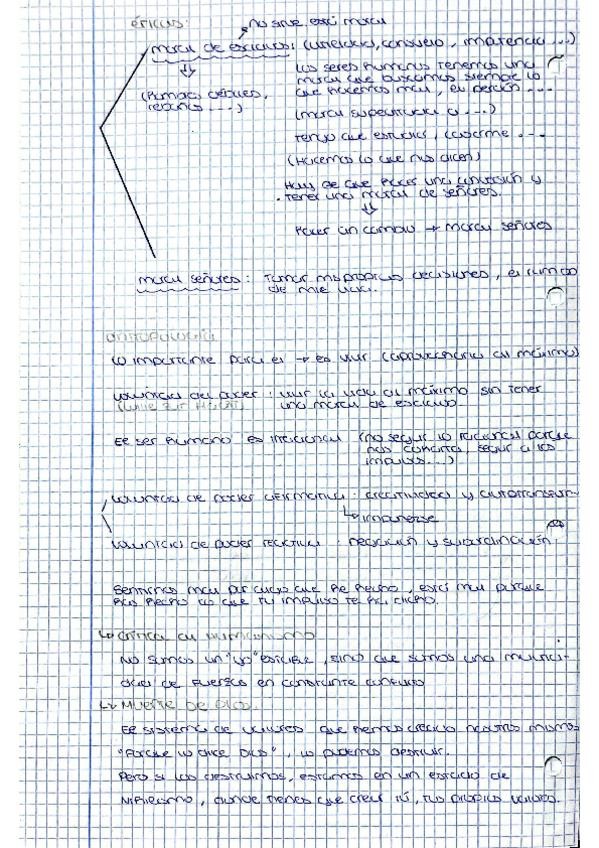 éticas:
→ no sirve, está mal
moral de esclavos: (obediencia, consuelo, inocencia ...)
(humanos débiles,
rebaños ....)
Los seres humanos tenemos una
moral que buscamos siempre lo
que hacemos mal, el perdón ...
(moral superficial a ...)
Tengo que estudiar, casarme ...
(Hacemos lo que nos dicen)
Hay de que hacer una conversión y
tener una moral de señores.
hacer un cambio → moral señores
moral señores: tomar mis propias decisiones, el rumbo
de mi vida.
antropología
lo importante para él → es vivir (aprovecharla al máximo)
voluntad del poder: vivir la vida al máximo sin tener
una moral de esclavo.
El ser humano es irracional (no seguir lo racional porque
nos coharta, seguir a los
impulsos...)
voluntad de poder afirmativa: creatividad y
voluntad de poder reactiva: negación y subordinación.
Sentirnos mal por algo que he hecho, está mal porque
has hecho lo que tu impulso te ha dicho.
↳ crítica al humanismo
No somos un "yo" estable, sino que somos una multici-
dad de fuerzas en constante conflicto
↳ Muerte de Dios.
El sistema de valores que hemos creado nosotros mismos
"Porque lo dice Dios", lo podemos destruir.
Pero si los destruimos, estamos en un estado de
Nihilismo, donde tienes que crear tú, tus propios valores.